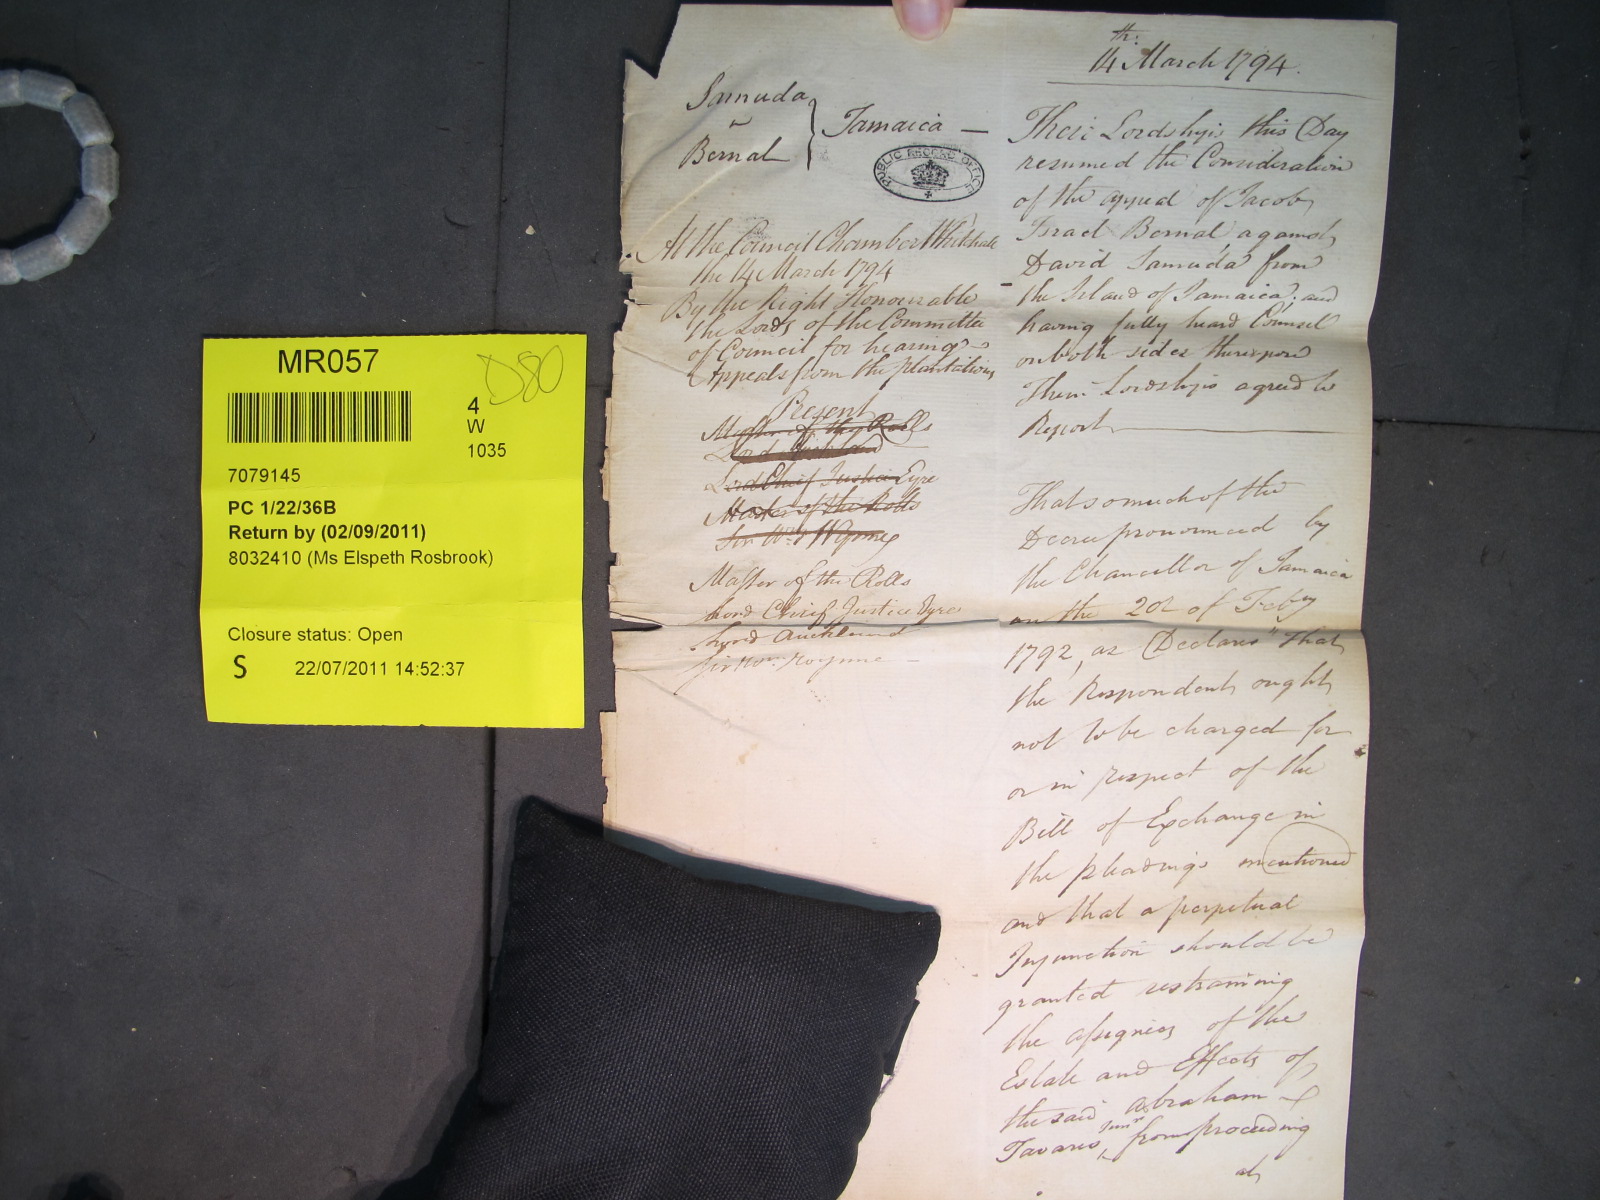 MR057
D80
4
W
1035
7079145
PC 1/22/36B
Return by (02/09/2011)
8032410 (Ms Elspeth Rosbrook)
Closure status: Open
S 22/07/2011 14:52:37
Samuda
v
Bernal
Jamaica —
PUBLIC RECORD OFFICE
At the Council Chamber Whitehall
the 14 March 1794
By the Right Honourable
the Lords of the Committee
of Council for hearing
Appeals from the plantations
Present
Master of the Rolls
Lord Auckland
Lord Chief Justice Eyre
Master of the Rolls
Sir Wm Wynne
Master of the Rolls
Lord Chief Justice Eyre
Lord Auckland
Sir Wm Wynne —
14th: March 1794.
Their Lordships this Day
resumed the Consideration
of the appeal of Jacob
Israel Bernal against
David Samuda from
the Island of Jamaica; and
having fully heard Counsel
on both sides thereupon
Their Lordships agreed to
Report
That so much of the
Decree pronounced by
the Chancellor of Jamaica
on the 20th of Feby
1792, as Declares "that
the Respondents ought
not to be charged for
or in respect of the
Bill of Exchange in
the pleadings mentioned
and that a perpetual
Injunction should be
granted restraining
the assignees of the
Estate and Effects of
the said Abraham
Tavares Junr from proceeding
at